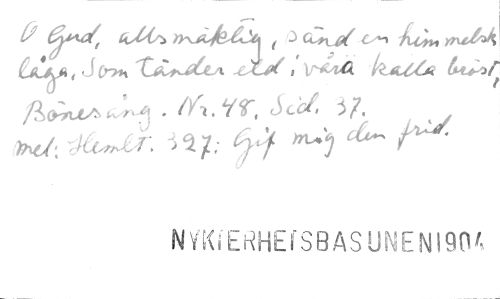 O Gud, allsmäktig, sänd en himmelsk
låga, Som tänder eld i våra kalla bröst,
Bönesång. Nr. 48, Sid. 37.
mel: Hemlt. 327: Gif mig den frid.
NYKTERHETSBASUNEN 1904